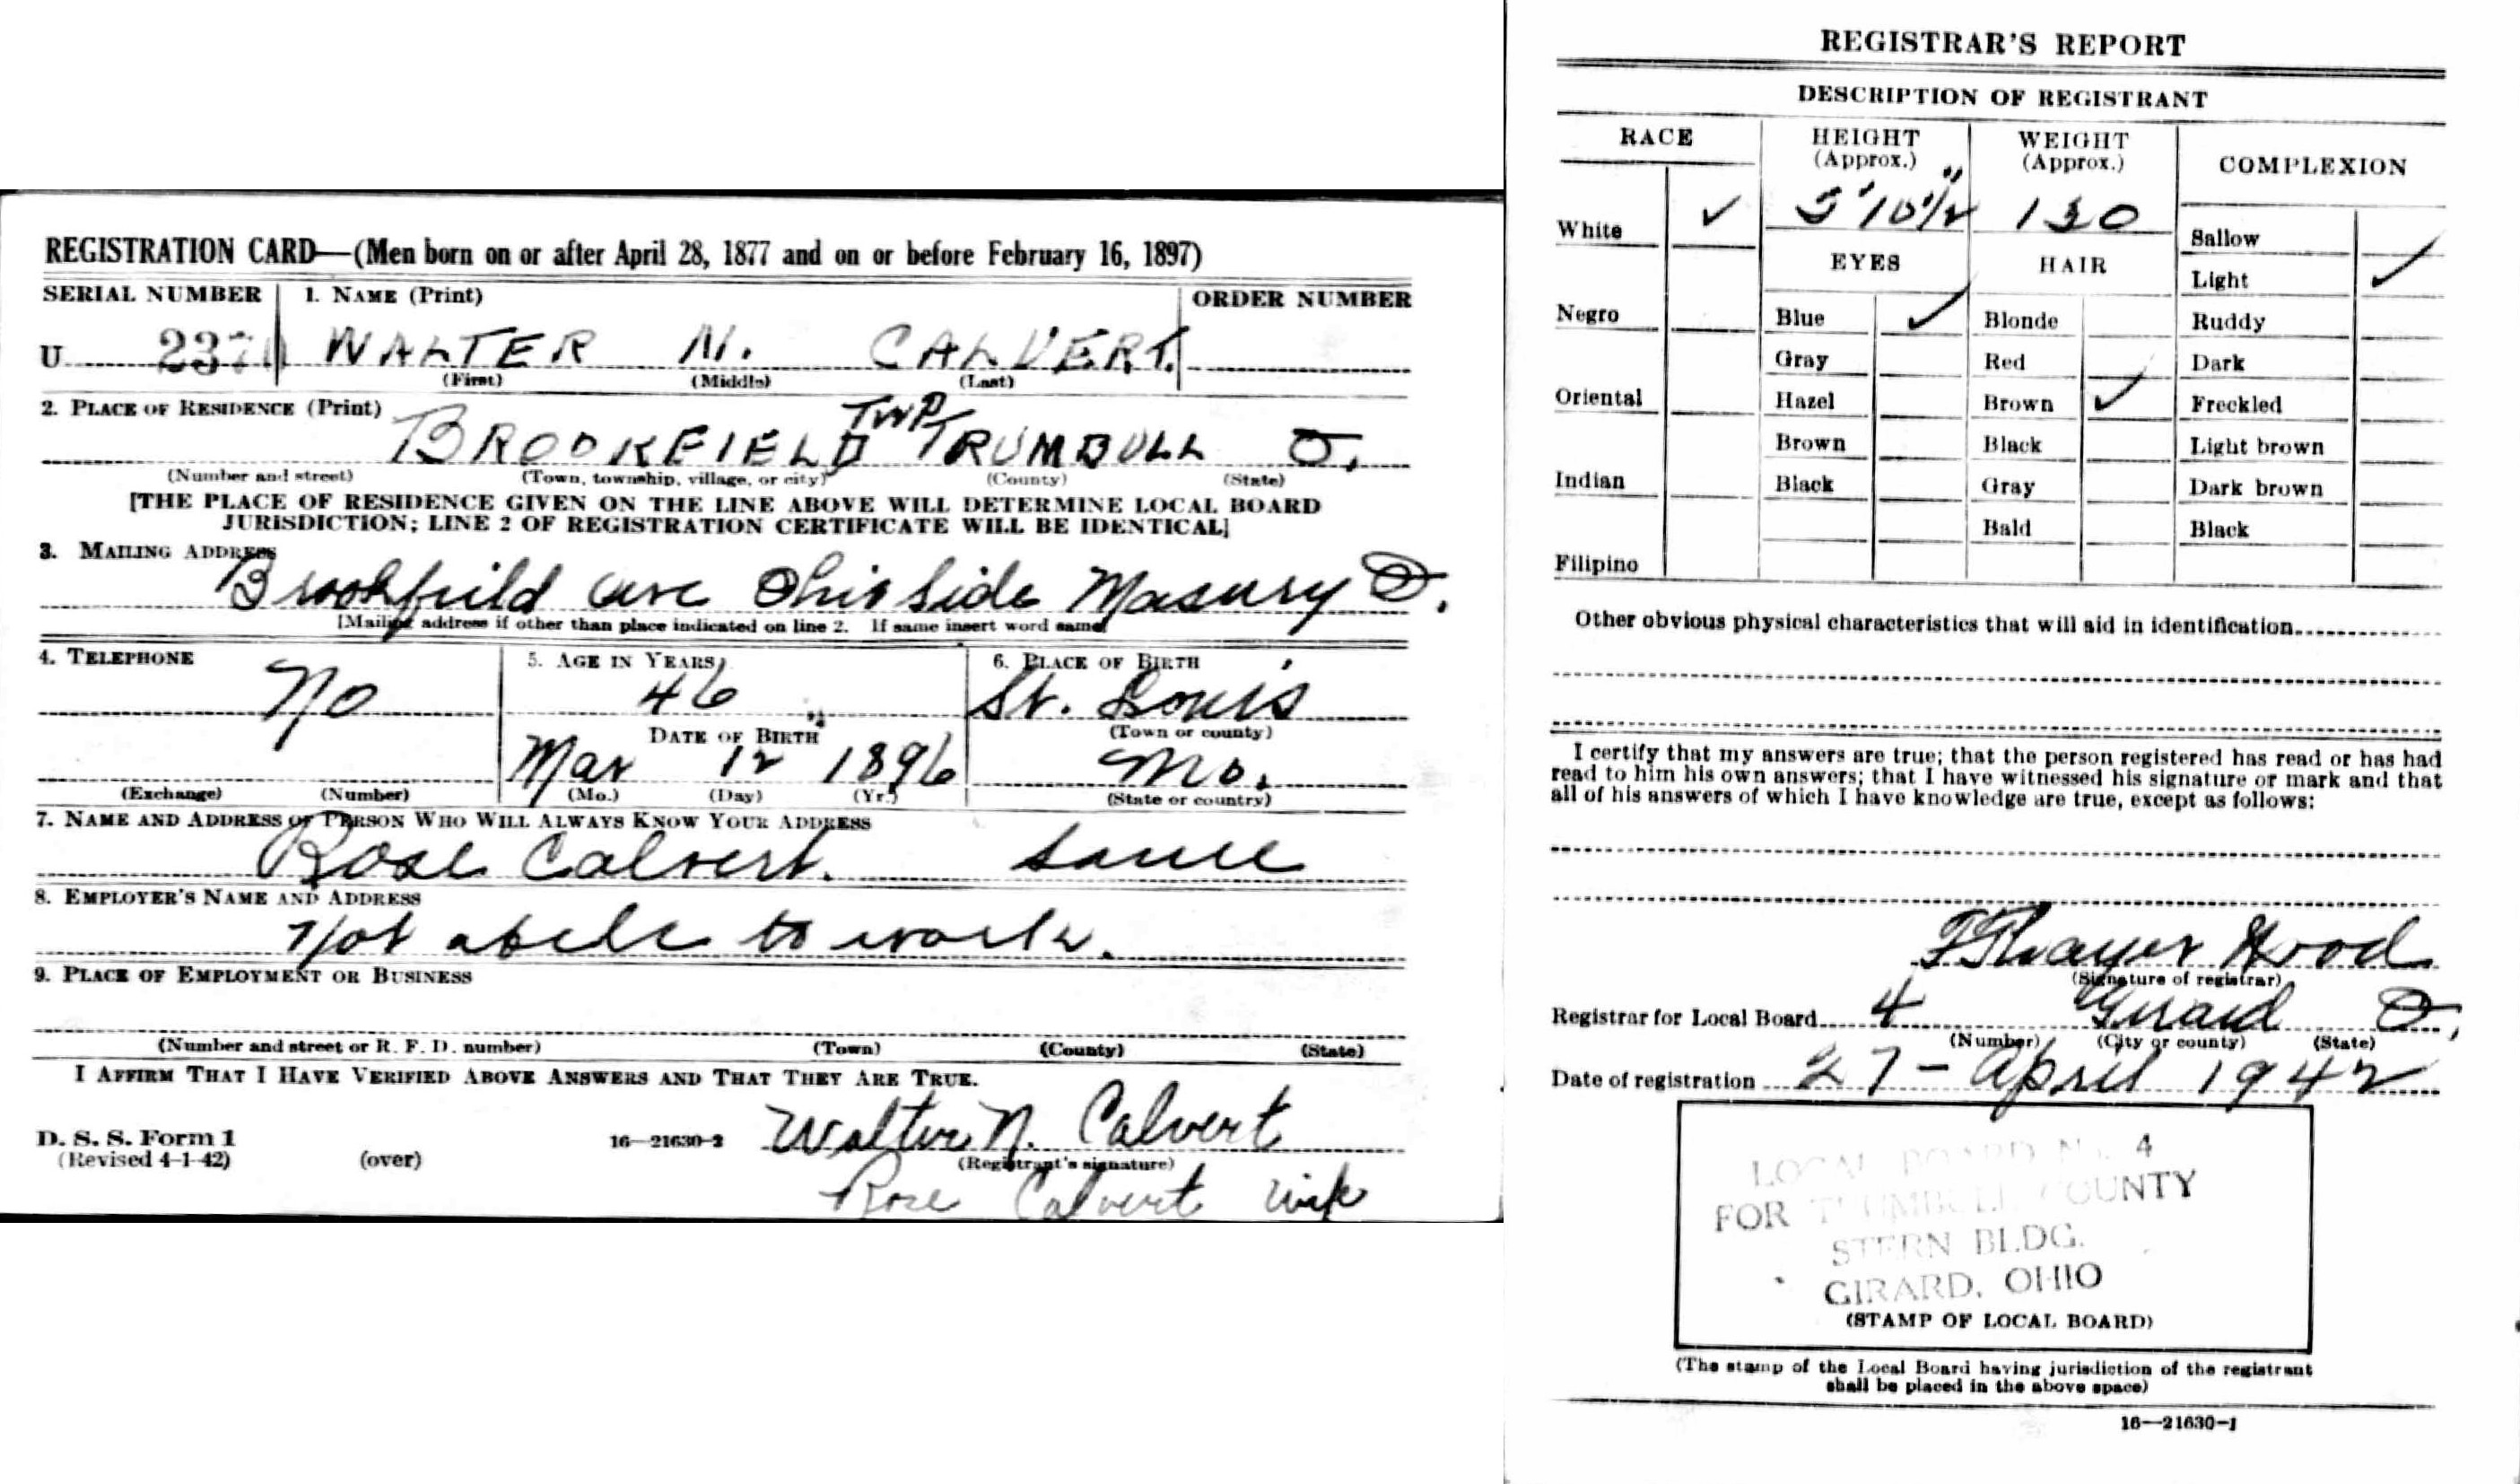 REGISTRATION CARD—(Men born on or after April 28, 1877 and on or before February 16, 1897)
SERIAL NUMBER 1. NAME (Print) ORDER NUMBER
U 237 WALTER N. CALVERT.
(First) (Middle) (Last)
2. PLACE OF RESIDENCE (Print)
BROOKFIELD TWP TRUMBULL O.
(Number and street) (Town, township, village, or city) (County) (State)
[THE PLACE OF RESIDENCE GIVEN ON THE LINE ABOVE WILL DETERMINE LOCAL BOARD
JURISDICTION; LINE 2 OF REGISTRATION CERTIFICATE WILL BE IDENTICAL]
3. MAILING ADDRESS
Brookfield ave Ohio side Masury O.
[Mailing address if other than place indicated on line 2. If same insert word same]
4. TELEPHONE 5. AGE IN YEARS 6. PLACE OF BIRTH
No 46 St. Louis
DATE OF BIRTH (Town or county)
Mar 12 1896 Mo.
(Exchange) (Number) (Mo.) (Day) (Yr.) (State or country)
7. NAME AND ADDRESS OF PERSON WHO WILL ALWAYS KNOW YOUR ADDRESS
Rose Calvert. Same
8. EMPLOYER'S NAME AND ADDRESS
Not able to work.
9. PLACE OF EMPLOYMENT OR BUSINESS
(Number and street or R. F. D. number) (Town) (County) (State)
I AFFIRM THAT I HAVE VERIFIED ABOVE ANSWERS AND THAT THEY ARE TRUE.
D. S. S. Form 1
(Revised 4-1-42) (over) 16—21630-2 Walter N. Calvert
(Registrant's signature)
Rose Calvert wife
REGISTRAR'S REPORT
DESCRIPTION OF REGISTRANT
RACE HEIGHT (Approx.) WEIGHT (Approx.) COMPLEXION
White ✓ 5'10 1/2" 130 Sallow
EYES HAIR Light ✓
Negro Blue ✓ Blonde Ruddy
Gray Red Dark
Oriental Hazel Brown ✓ Freckled
Brown Black Light brown
Indian Black Gray Dark brown
Bald Black
Filipino
Other obvious physical characteristics that will aid in identification
I certify that my answers are true; that the person registered has read or has had
read to him his own answers; that I have witnessed his signature or mark and that
all of his answers of which I have knowledge are true, except as follows:
Thayer Hood
(Signature of registrar)
Registrar for Local Board 4 Girard O.
(Number) (City or county) (State)
Date of registration 27 - April 1942
LOCAL BOARD No. 4
FOR TRUMBULL COUNTY
STERN BLDG.
GIRARD, OHIO
(STAMP OF LOCAL BOARD)
(The stamp of the Local Board having jurisdiction of the registrant
shall be placed in the above space)
16—21630-1